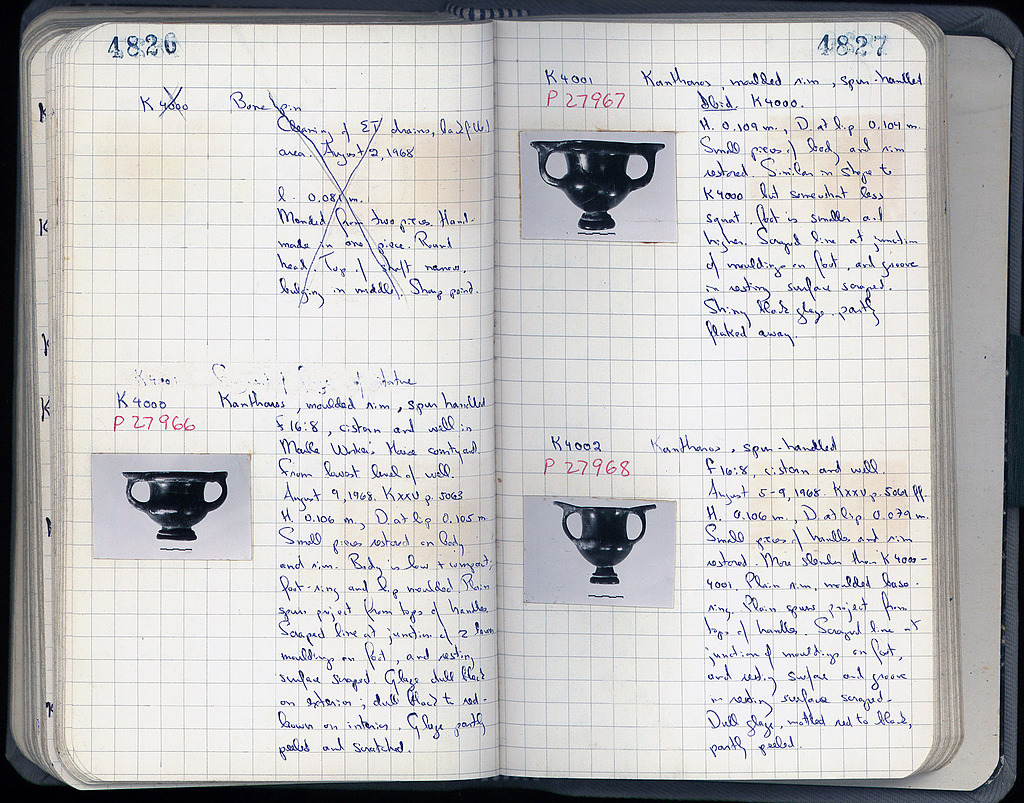 4826
K 4000 Bone pin
Cleaning of ET drains,
area. August 2, 1968
l. 0.081 m.
Mended from two pieces. Hand-
made in one piece. Round
head. Top of shaft narrow,
bulging in middle. Sharp point.
of statue
K 4000 Kantharos, moulded rim, spur handled
P 27966
F 16:8, cistern and well in
Marble Worker's House courtyard.
From lowest level of well.
August 9, 1968. KXXV p. 5063
H. 0.106 m., D. at lip 0.105 m.
Small pieces restored on body
and rim. Body is low + compact;
foot-ring and lip moulded. Plain
spurs project from tops of handles.
Scraped line at junction of 2 lower
mouldings on foot, and resting
surface scraped. Glaze dull black
on exterior, dull black to red-
brown on interior. Glaze partly
peeled and scratched.
4827
K 4001 Kantharos, moulded rim, spur-handled
P 27967
Ibid. K4000.
H. 0.109 m., D. at lip 0.104 m.
Small pieces of body and rim
restored. Similar in shape to
K4000 but somewhat less
squat. Foot is smaller and
higher. Scraped line at junction
of mouldings on foot, and groove
in resting surface scraped.
Shiny black glaze, partly
flaked away.
K4002 Kantharos, spur-handled
P 27968
F 16:8, cistern and well.
August 5-9, 1968. KXXV p. 5061 ff.
H. 0.106 m., D. at lip 0.079 m.
Small pieces of handles and rim
restored. More slender than K 4000-
4001. Plain rim, moulded base-
ring. Plain spurs project from
tops of handles. Scraped line at
junction of mouldings on foot,
and resting surface and groove
in resting surface scraped.
Dull glaze, mottled red to black,
partly peeled.